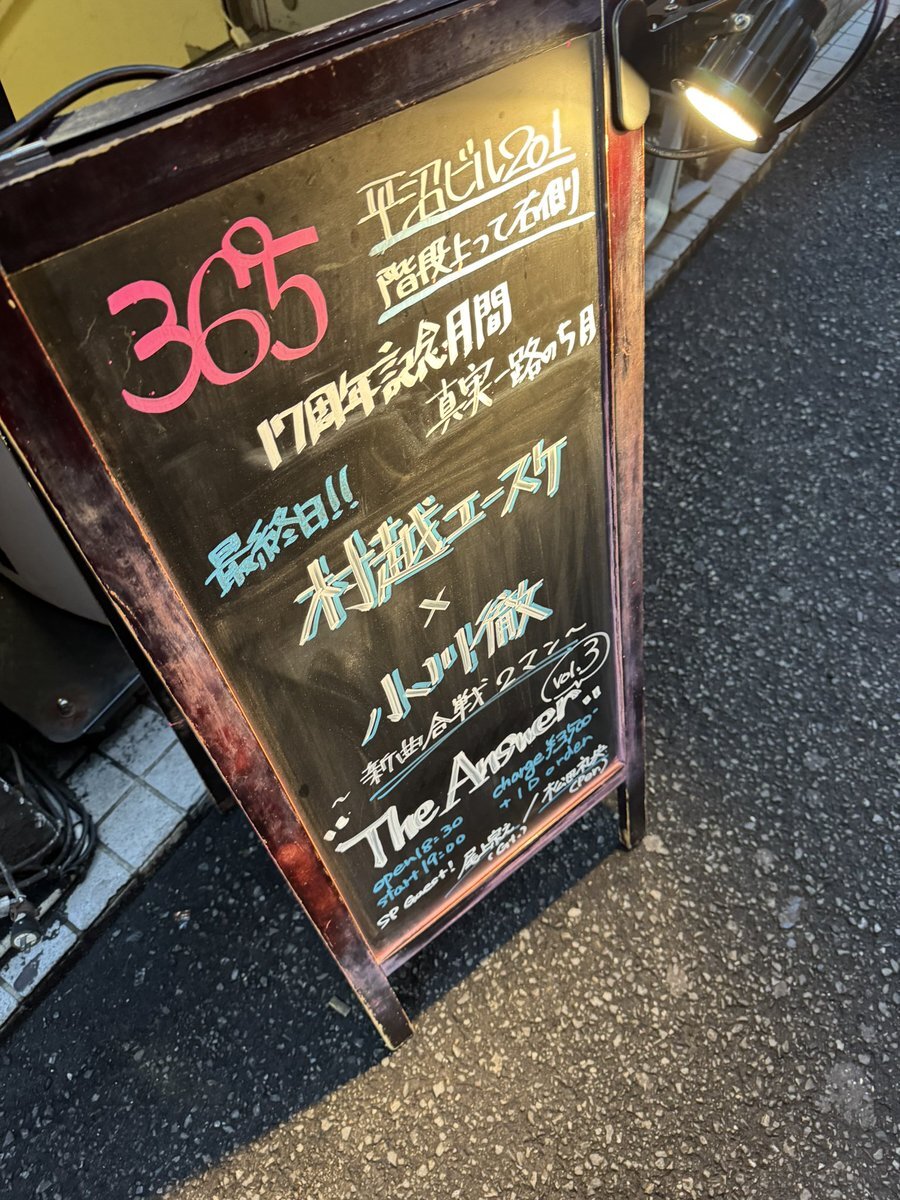 365
平沼ビル201
階段上って右側
17周年記念月間
真実一路の5月
最終日!!
村越エースケ
×
小川徹
~新曲合戦ワマン~
vol.3
"The Answer"
open18:30
start19:00
charge ¥3,500-
+1D order
SP Guest!
(Gt.)
(Per)